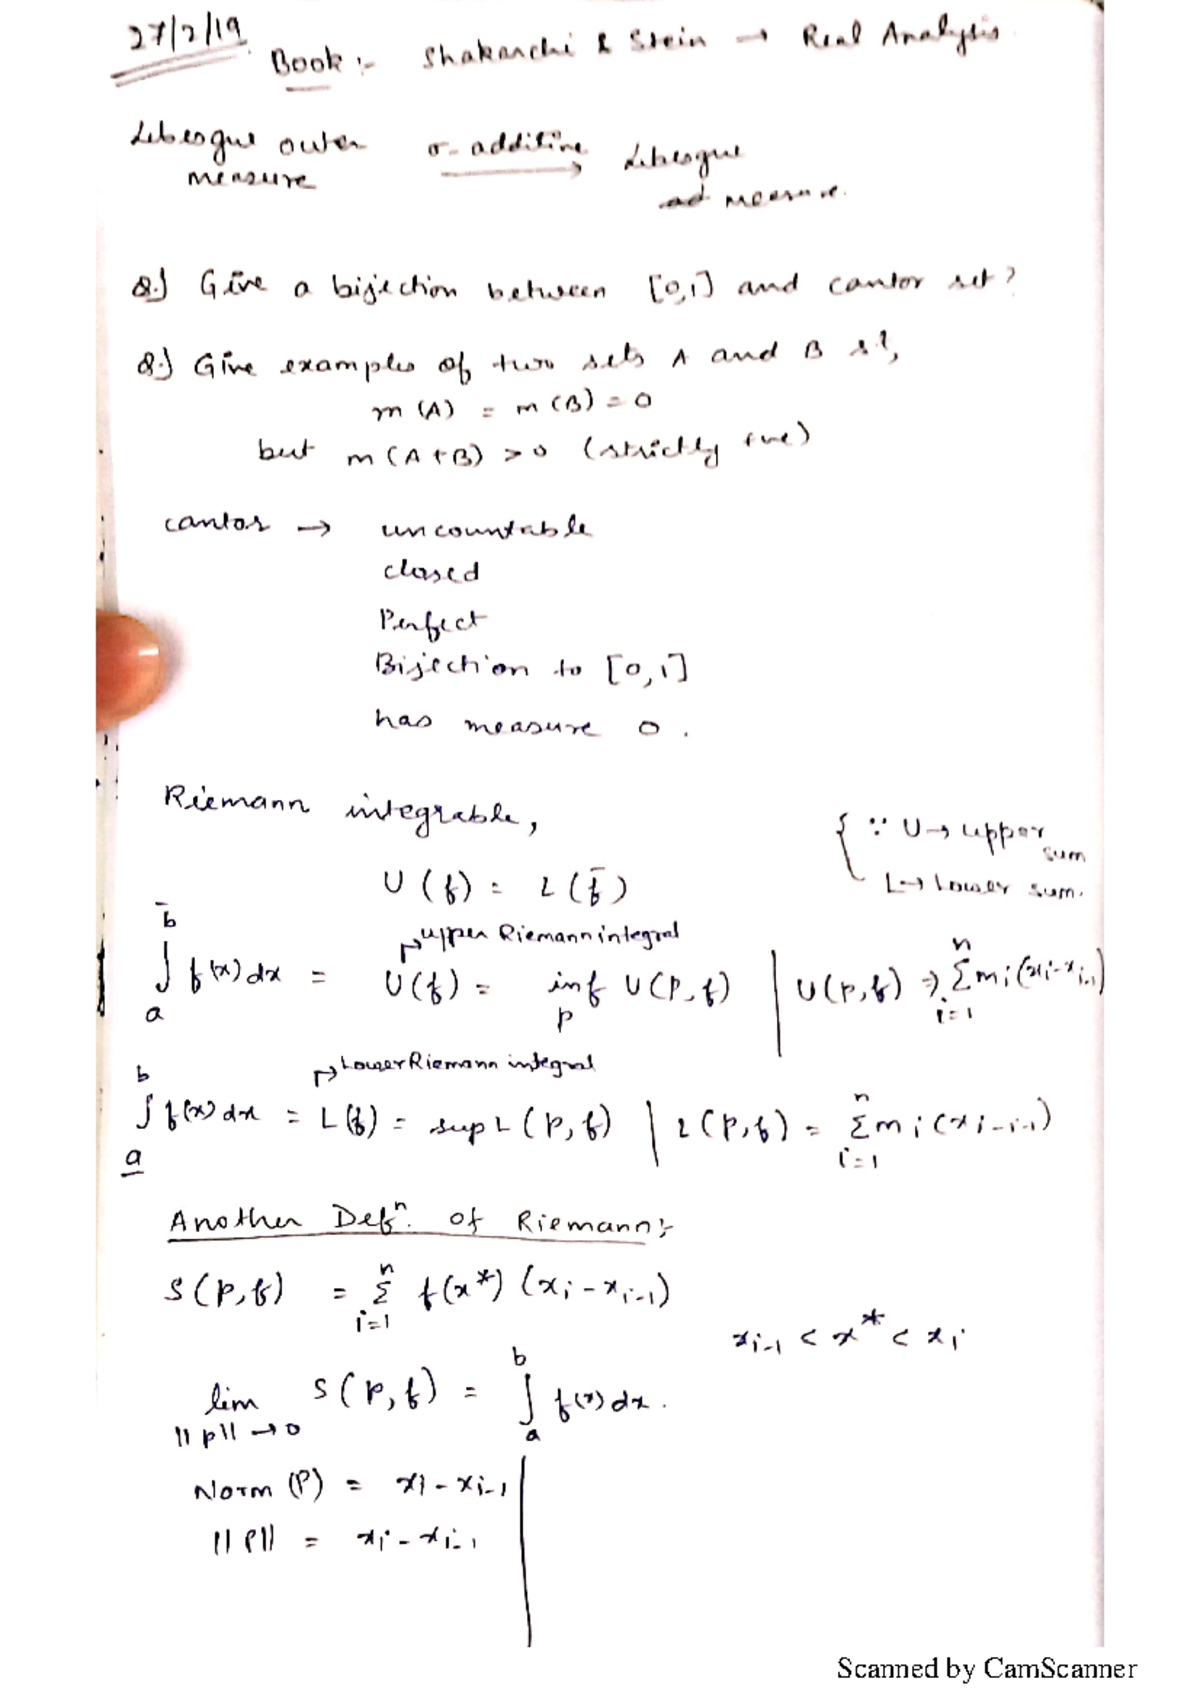 27/2/19
Book :- Shakarchi & Stein → Real Analysis
Lebesgue outer measure σ-additive → Lebesgue measure.
Q.) Give a bijection between [0,1] and cantor set?
Q.) Give examples of two sets A and B s.t,
m(A) = m(B) = 0
but m(A+B) > 0 (strictly +ve)
cantor → uncountable
closed
Perfect
Bijection to [0,1]
has measure 0.
Riemann integrable, { ∵ U → upper sum
U(f) = L(f) L → Lower sum.
↱ upper Riemann integral
∫_a^b̅ f(x) dx = U(f) = inf_P U(P,f) | U(P,f) ⇒ Σ_{i=1}^n m_i (x_i - x_{i-1})
↱ Lower Riemann integral
∫_a̲^b f(x) dx = L(f) = sup L(P,f) | L(P,f) = Σ_{i=1}^n m_i (x_i - i-1)
Another Defⁿ. of Riemann:-
S(P,f) = Σ_{i=1}^n f(x*) (x_i - x_{i-1})
x_{i-1} < x* < x_i
lim_{||P||→0} S(P,f) = ∫_a^b f(x) dx.
Norm (P) = x_i - x_{i-1}
||P|| = x_i - x_{i-1}
Scanned by CamScanner